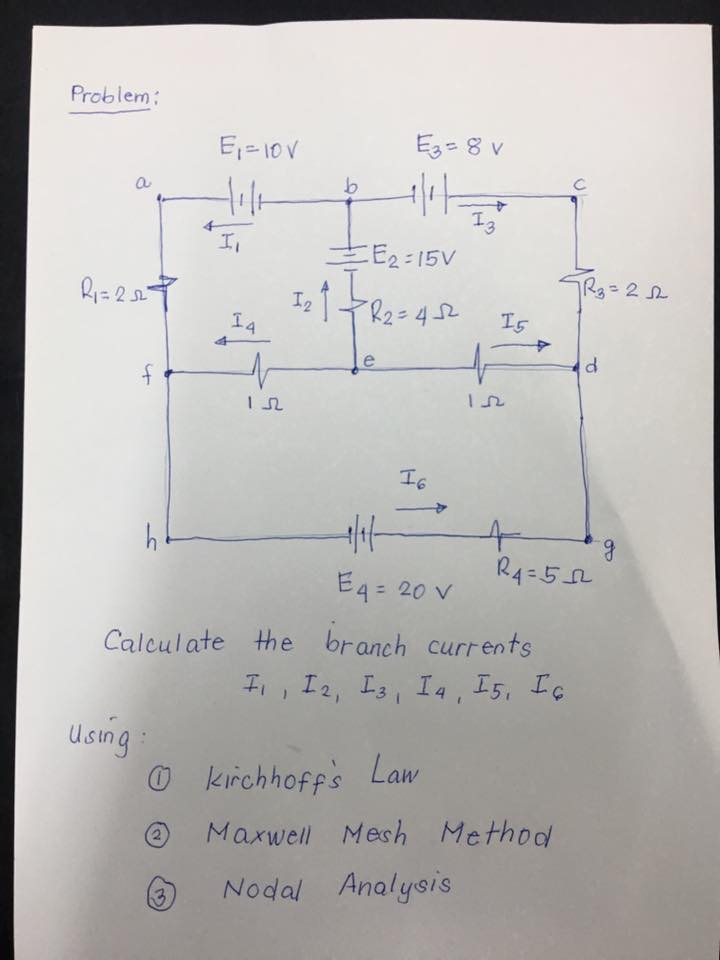 Problem:
E1=10V E3= 8 V
a b c
I1 I3
E2=15V
R1=2Ω I2 R2=4Ω R3=2Ω
I4 I5
f e d
1Ω 1Ω
I6
h g
E4= 20 V R4=5Ω
Calculate the branch currents
I1, I2, I3, I4, I5, I6
Using:
① Kirchhoff's Law
② Maxwell Mesh Method
③ Nodal Analysis